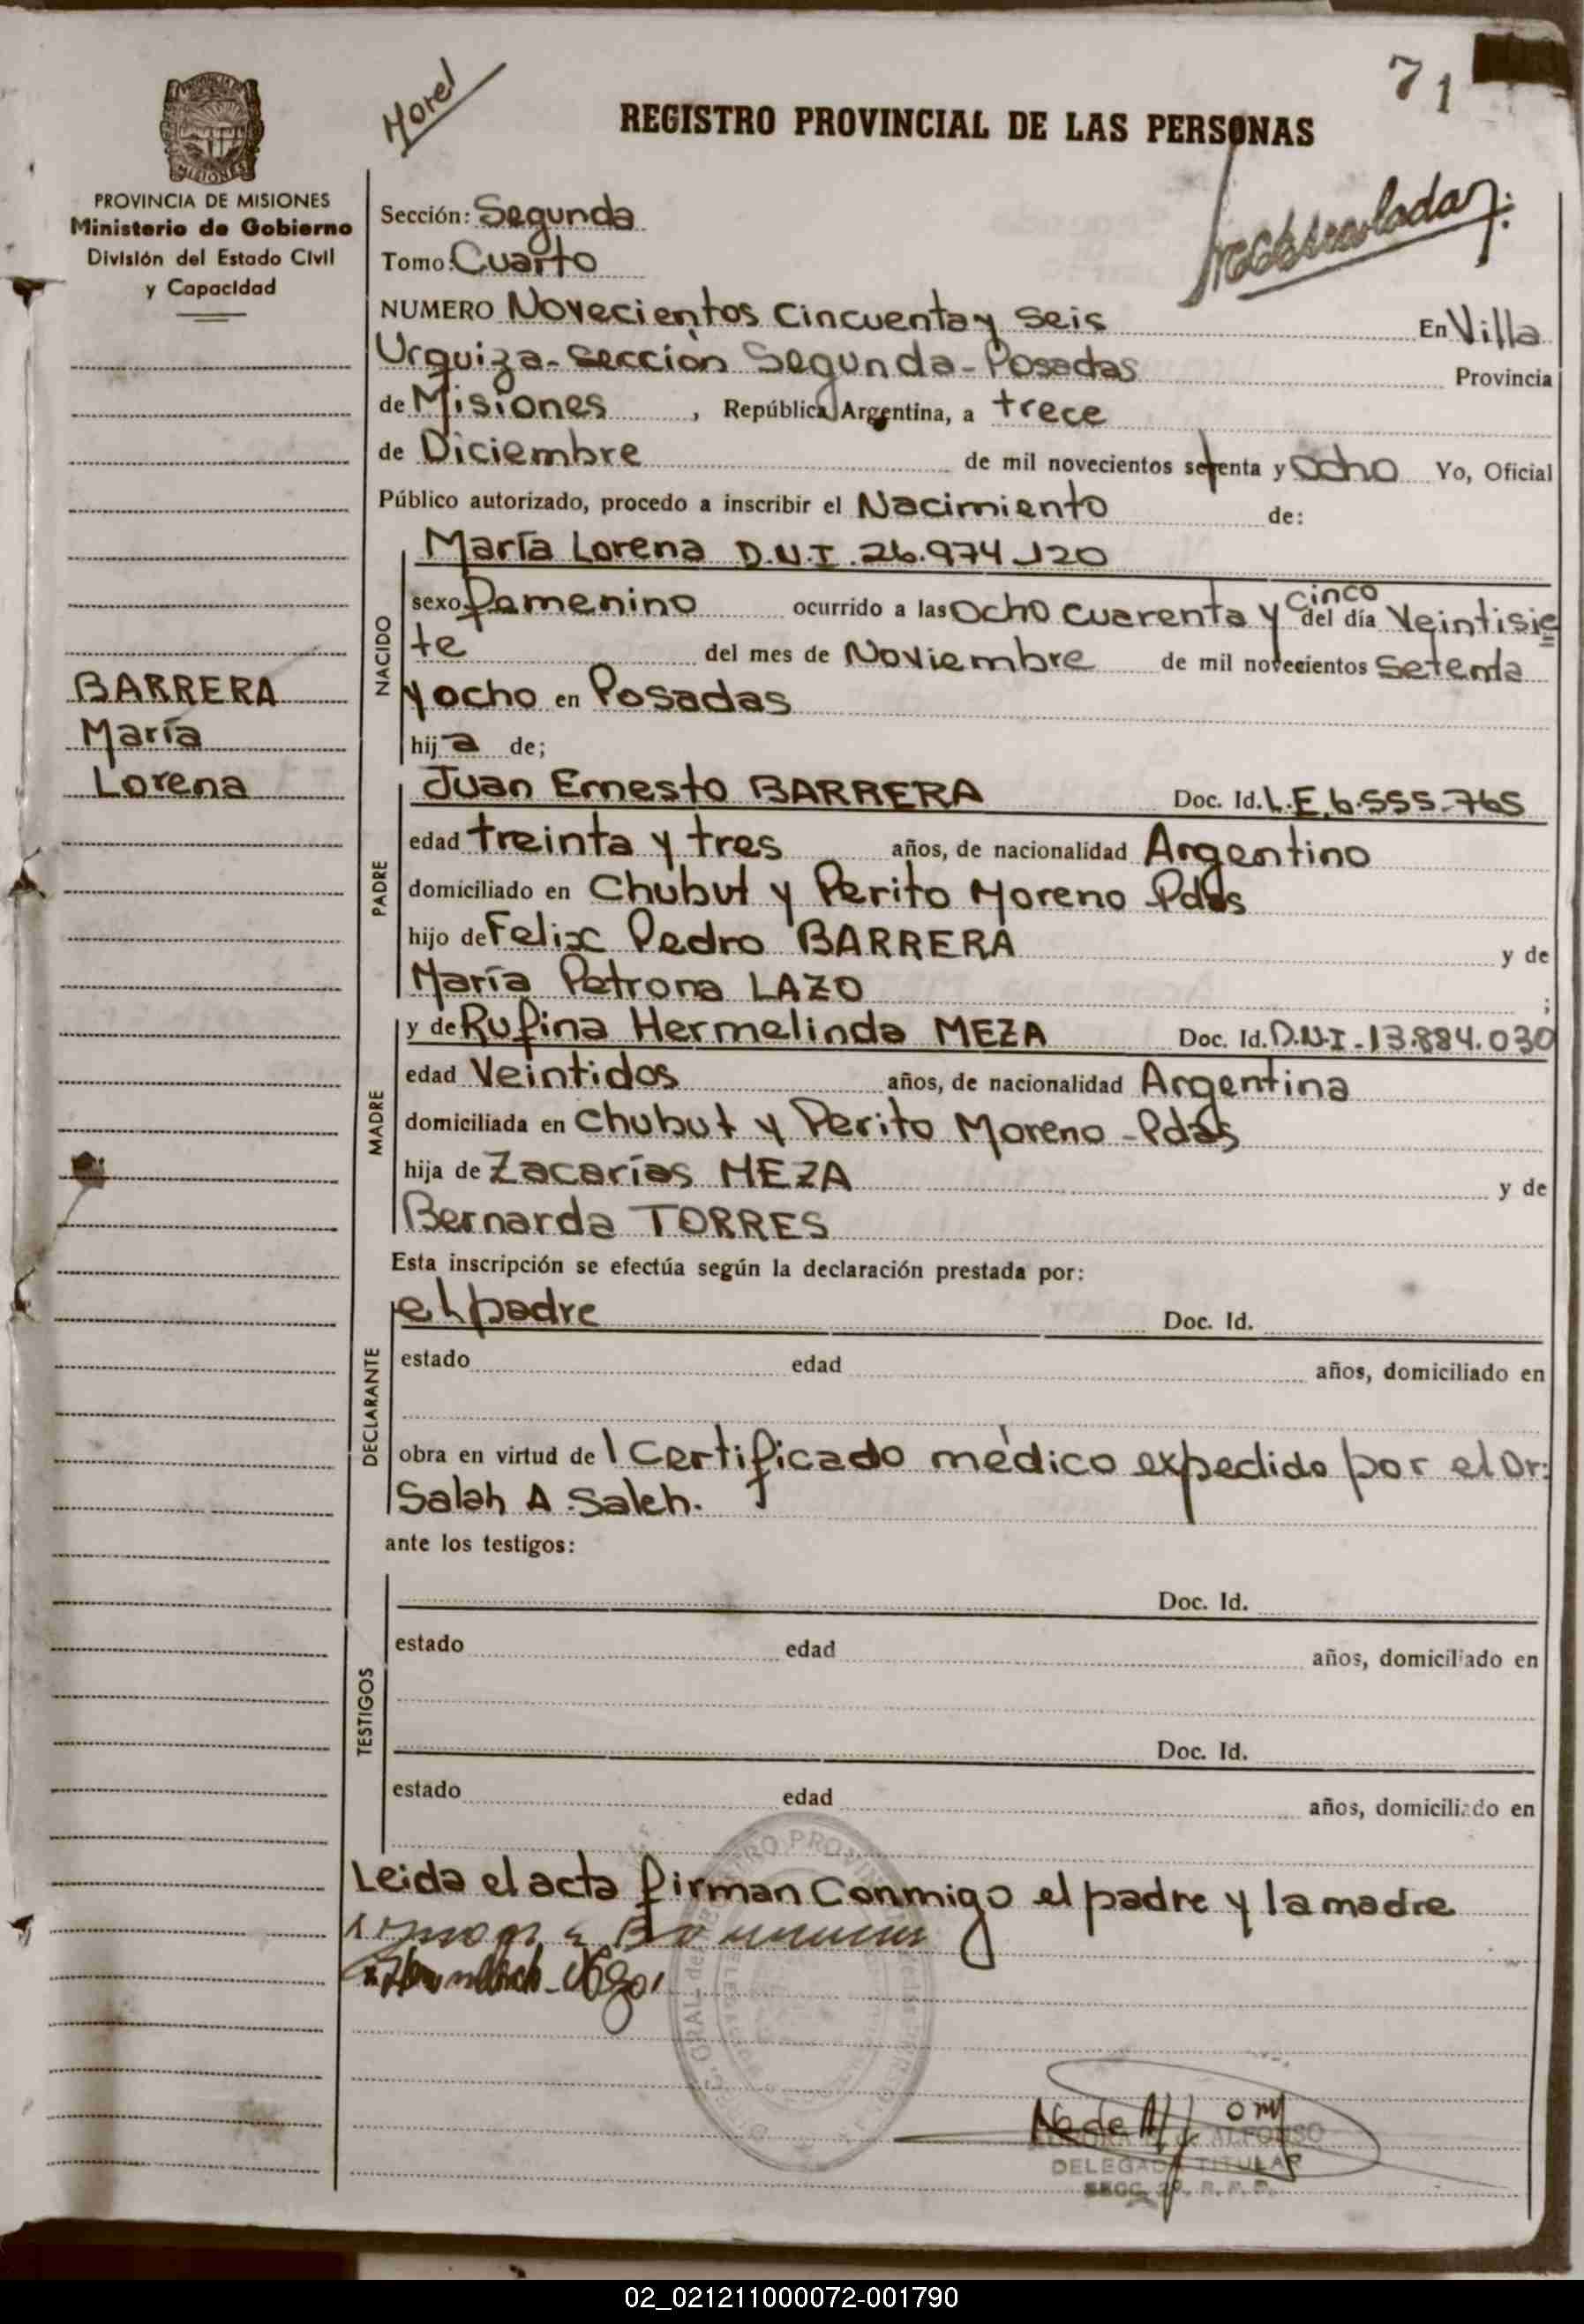 71
REGISTRO PROVINCIAL DE LAS PERSONAS
PROVINCIA DE MISIONES
Ministerio de Gobierno
División del Estado Civil
y Capacidad
Sección: Segunda
Tomo: Cuarto
NUMERO Novecientos Cincuenta y Seis En Villa
Urquiza - Sección Segunda - Posadas Provincia
de Misiones, República Argentina, a trece
de Diciembre de mil novecientos setenta y Ocho Yo, Oficial
Público autorizado, procedo a inscribir el Nacimiento de:
María Lorena D.N.I. 26.974.120
NACIDO
cinco
sexo femenino ocurrido a las Ocho Cuarenta y del día Veintisie
te del mes de Noviembre de mil novecientos Setenta
y ocho en Posadas
hija de;
BARRERA
María
Lorena
PADRE
Juan Ernesto BARRERA Doc. Id. L.E. 6.555.765
edad treinta y tres años, de nacionalidad Argentino
domiciliado en Chubut y Perito Moreno Pdas
hijo de Felix Pedro BARRERA y de
María Petrona LAZO ;
MADRE
y de Rufina Hermelinda MEZA Doc. Id. D.N.I. 13.884.030
edad Veintidos años, de nacionalidad Argentina
domiciliada en Chubut y Perito Moreno - Pdas
hija de Zacarías MEZA y de
Bernarda TORRES
Esta inscripción se efectúa según la declaración prestada por:
DECLARANTE
el padre Doc. Id.
estado edad años, domiciliado en
obra en virtud de 1 Certificado médico expedido por el Dr:
Salah A. Saleh.
ante los testigos:
TESTIGOS
Doc. Id.
estado edad años, domiciliado en
Doc. Id.
estado edad años, domiciliado en
Leida el acta firman Conmigo el padre y la madre
ALFONSO
DELEGADA TITULAR
SECC. 2ª. R. P. P.
02_021211000072-001790